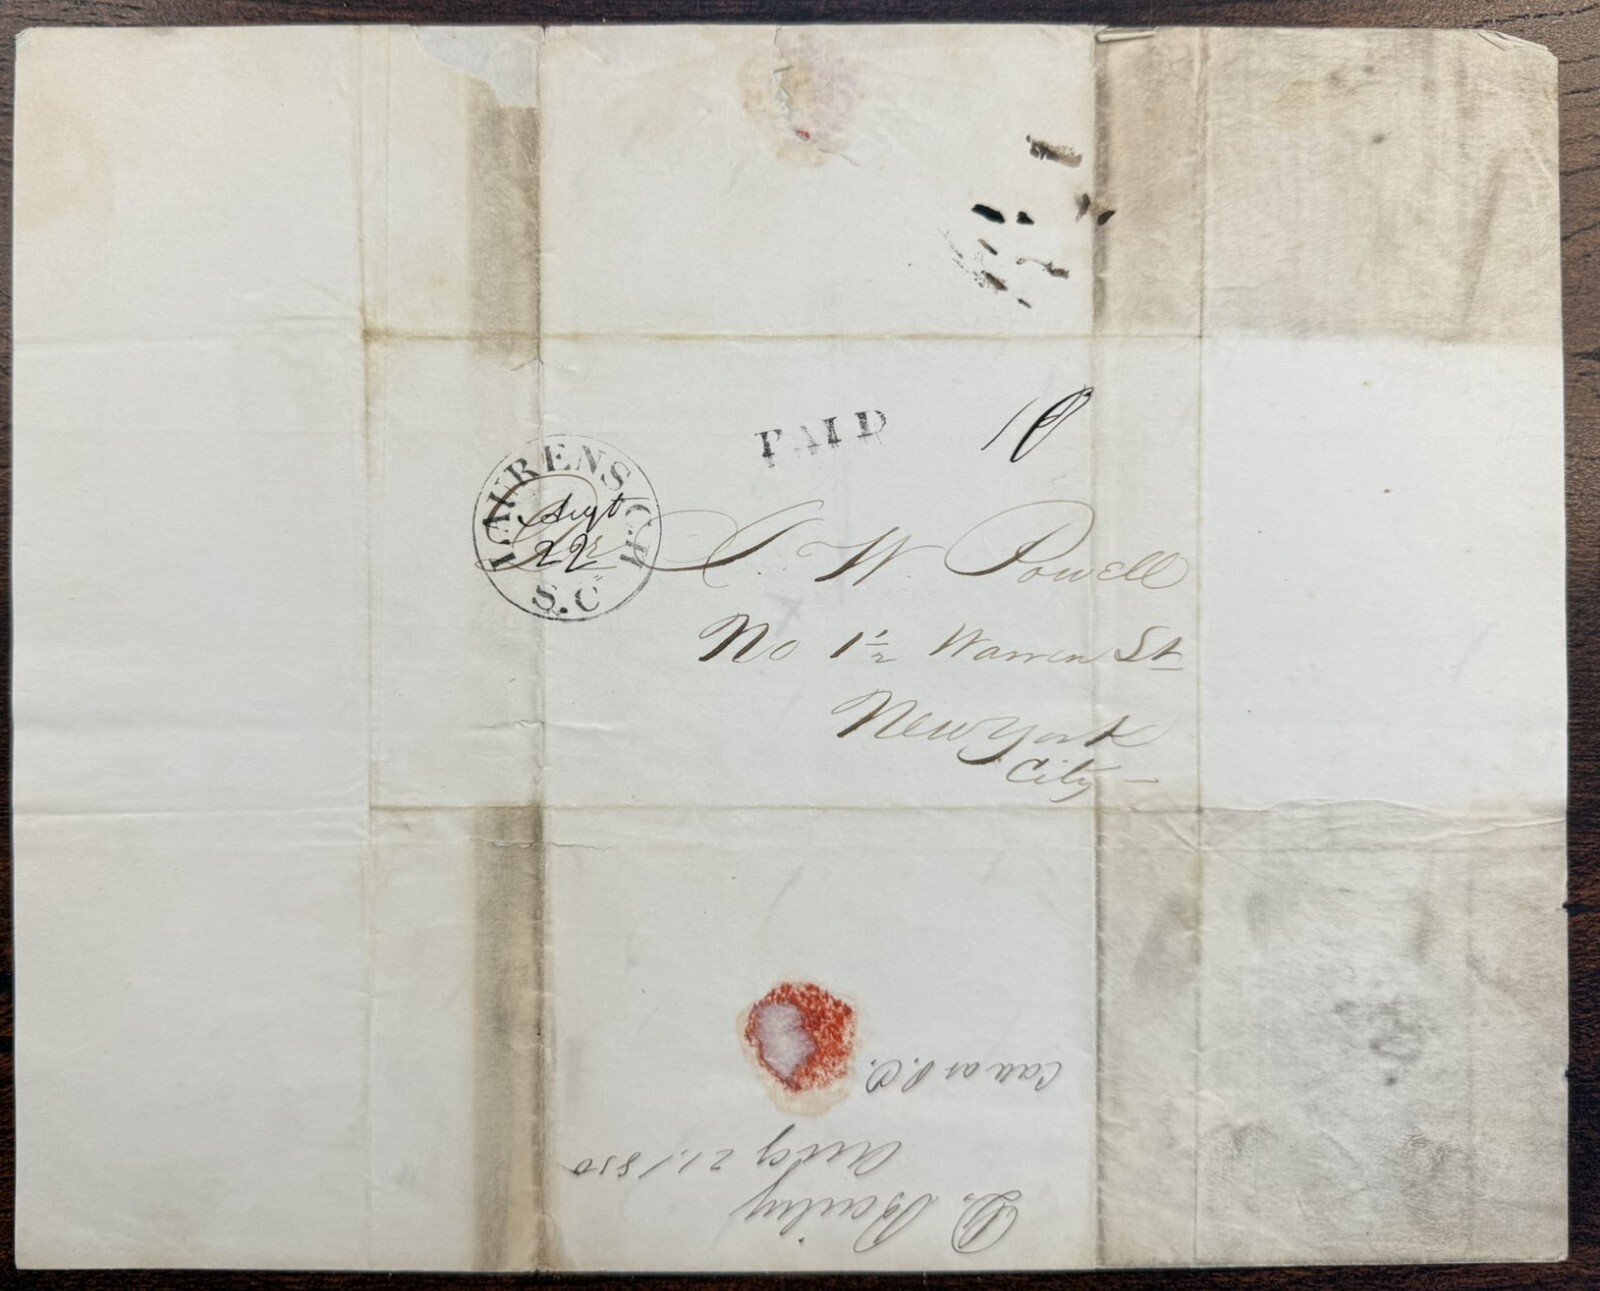 PAID 10
LAURENS C.H.
Augt
22
S.C.
Dr. S. W. Powell
No 1½ Warren St
New York
City
D. Bailey
Augt 21. 1850